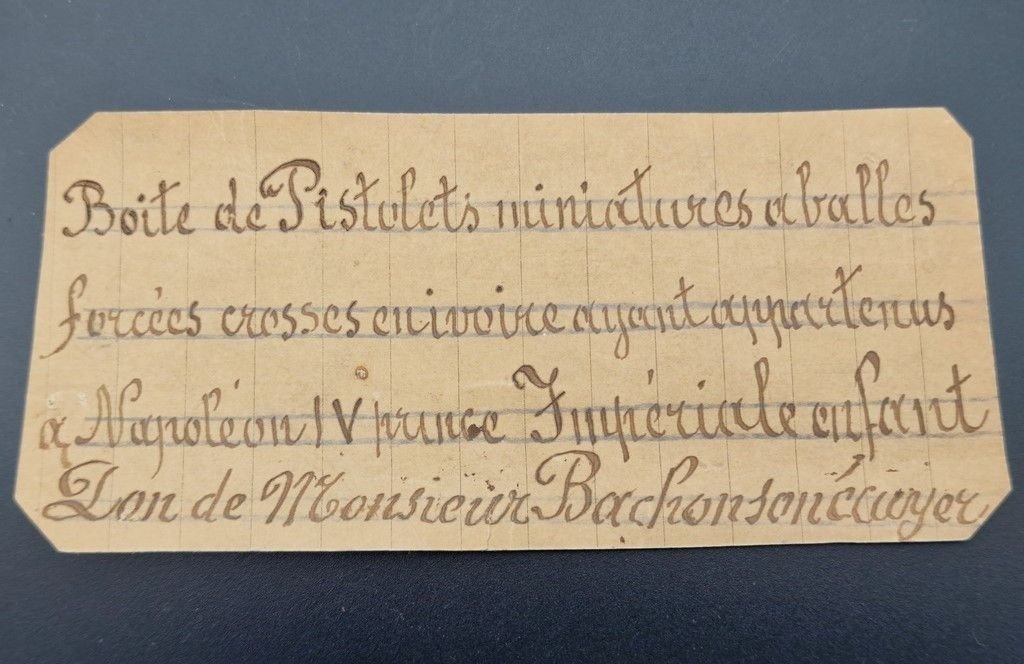 Boite de Pistolets miniatures a balles
forcées crosses en ivoire ayant appartenus
a Napoléon IV prince Impériale enfant
Don de Monsieur Bachon son écuyer